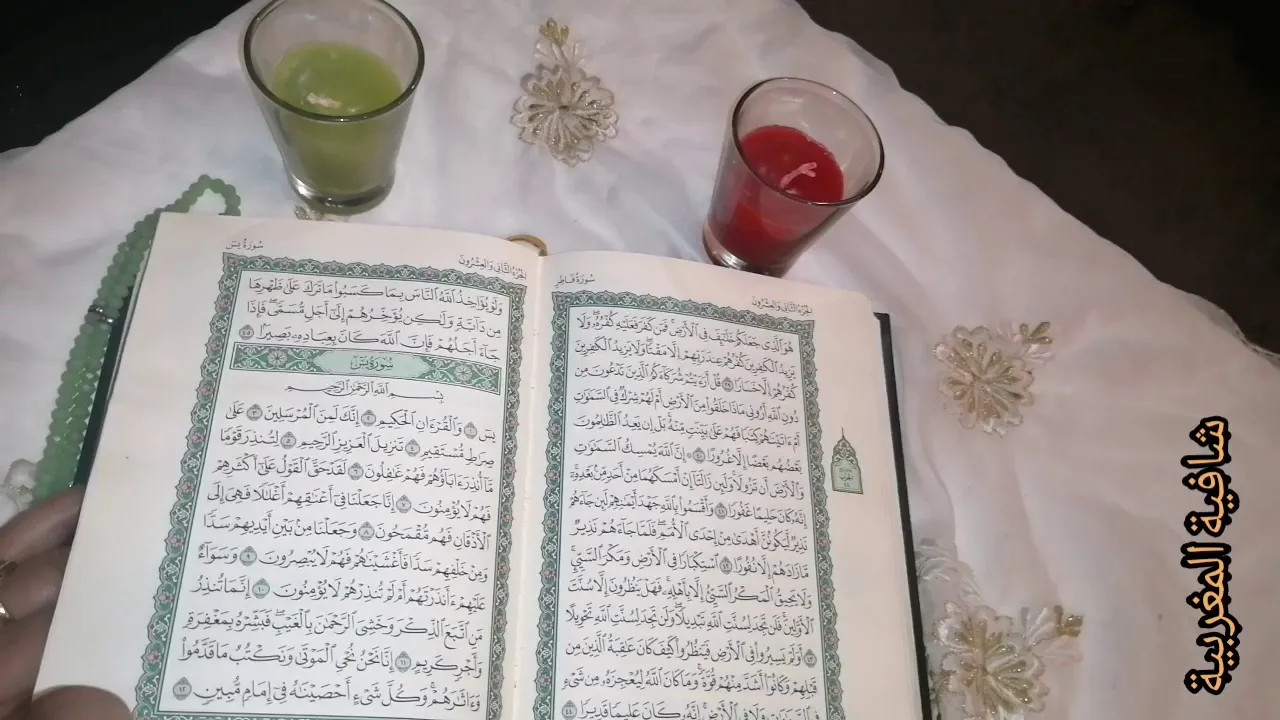 سُورَةُ فَاطِر
الجُزْءُ الثَّانِي وَالعِشْرُونَ
هُوَ ٱلَّذِي جَعَلَكُمْ خَلَٰٓئِفَ فِي ٱلْأَرْضِ فَمَن كَفَرَ فَعَلَيْهِ كُفْرُهُۥ وَلَا
يَزِيدُ ٱلْكَٰفِرِينَ كُفْرُهُمْ عِندَ رَبِّهِمْ إِلَّا مَقْتًا وَلَا يَزِيدُ ٱلْكَٰفِرِينَ
كُفْرُهُمْ إِلَّا خَسَارًا ٣٩ قُلْ أَرَءَيْتُمْ شُرَكَآءَكُمُ ٱلَّذِينَ تَدْعُونَ مِن
دُونِ ٱللَّهِ أَرُونِي مَاذَا خَلَقُوا۟ مِنَ ٱلْأَرْضِ أَمْ لَهُمْ شِرْكٌ فِي ٱلسَّمَٰوَٰتِ
أَمْ ءَاتَيْنَٰهُمْ كِتَٰبًا فَهُمْ عَلَىٰ بَيِّنَتٍ مِّنْهُ بَلْ إِن يَعِدُ ٱلظَّٰلِمُونَ
بَعْضُهُم بَعْضًا إِلَّا غُرُورًا ٤٠ إِنَّ ٱللَّهَ يُمْسِكُ ٱلسَّمَٰوَٰتِ
وَٱلْأَرْضَ أَن تَزُولَا وَلَئِن زَالَتَآ إِنْ أَمْسَكَهُمَا مِنْ أَحَدٍ مِّنۢ بَعْدِهِۦٓ
إِنَّهُۥ كَانَ حَلِيمًا غَفُورًا ٤١ وَأَقْسَمُوا۟ بِٱللَّهِ جَهْدَ أَيْمَٰنِهِمْ لَئِن جَآءَهُمْ
نَذِيرٌ لَّيَكُونُنَّ أَهْدَىٰ مِنْ إِحْدَى ٱلْأُمَمِ فَلَمَّا جَآءَهُمْ نَذِيرٌ
مَّا زَادَهُمْ إِلَّا نُفُورًا ٤٢ ٱسْتِكْبَارًا فِي ٱلْأَرْضِ وَمَكْرَ ٱلسَّيِّئِ
وَلَا يَحِيقُ ٱلْمَكْرُ ٱلسَّيِّئُ إِلَّا بِأَهْلِهِۦ فَهَلْ يَنظُرُونَ إِلَّا سُنَّتَ
ٱلْأَوَّلِينَ فَلَن تَجِدَ لِسُنَّتِ ٱللَّهِ تَبْدِيلًا وَلَن تَجِدَ لِسُنَّتِ ٱللَّهِ تَحْوِيلًا
٤٣ أَوَلَمْ يَسِيرُوا۟ فِي ٱلْأَرْضِ فَيَنظُرُوا۟ كَيْفَ كَانَ عَٰقِبَةُ ٱلَّذِينَ مِن
قَبْلِهِمْ وَكَانُوٓا۟ أَشَدَّ مِنْهُمْ قُوَّةً وَمَا كَانَ ٱللَّهُ لِيُعْجِزَهُۥ مِن شَيْءٍ
فِي ٱلسَّمَٰوَٰتِ وَلَا فِي ٱلْأَرْضِ إِنَّهُۥ كَانَ عَلِيمًا قَدِيرًا ٤٤
الجُزْءُ الثَّانِي وَالعِشْرُونَ
سُورَةُ يسٓ
وَلَوْ يُؤَاخِذُ ٱللَّهُ ٱلنَّاسَ بِمَا كَسَبُوا۟ مَا تَرَكَ عَلَىٰ ظَهْرِهَا
مِن دَآبَّةٍ وَلَٰكِن يُؤَخِّرُهُمْ إِلَىٰٓ أَجَلٍ مُّسَمًّى فَإِذَا
جَآءَ أَجَلُهُمْ فَإِنَّ ٱللَّهَ كَانَ بِعِبَادِهِۦ بَصِيرًۢا ٤٥
سُورَةُ يسٓ
بِسْمِ ٱللَّهِ ٱلرَّحْمَٰنِ ٱلرَّحِيمِ
يسٓ ١ وَٱلْقُرْءَانِ ٱلْحَكِيمِ ٢ إِنَّكَ لَمِنَ ٱلْمُرْسَلِينَ ٣ عَلَىٰ
صِرَٰطٍ مُّسْتَقِيمٍ ٤ تَنزِيلَ ٱلْعَزِيزِ ٱلرَّحِيمِ ٥ لِتُنذِرَ قَوْمًا
مَّآ أُنذِرَ ءَابَآؤُهُمْ فَهُمْ غَٰفِلُونَ ٦ لَقَدْ حَقَّ ٱلْقَوْلُ عَلَىٰٓ أَكْثَرِهِمْ
فَهُمْ لَا يُؤْمِنُونَ ٧ إِنَّا جَعَلْنَا فِيٓ أَعْنَٰقِهِمْ أَغْلَٰلًا فَهِيَ إِلَى
ٱلْأَذْقَانِ فَهُم مُّقْمَحُونَ ٨ وَجَعَلْنَا مِنۢ بَيْنِ أَيْدِيهِمْ سَدًّا
وَمِنْ خَلْفِهِمْ سَدًّا فَأَغْشَيْنَٰهُمْ فَهُمْ لَا يُبْصِرُونَ ٩ وَسَوَآءٌ
عَلَيْهِمْ ءَأَنذَرْتَهُمْ أَمْ لَمْ تُنذِرْهُمْ لَا يُؤْمِنُونَ ١٠ إِنَّمَا تُنذِرُ
مَنِ ٱتَّبَعَ ٱلذِّكْرَ وَخَشِيَ ٱلرَّحْمَٰنَ بِٱلْغَيْبِ فَبَشِّرْهُ بِمَغْفِرَةٍ
وَأَجْرٍ كَرِيمٍ ١١ إِنَّا نَحْنُ نُحْيِ ٱلْمَوْتَىٰ وَنَكْتُبُ مَا قَدَّمُوا۟
وَءَاثَٰرَهُمْ وَكُلَّ شَيْءٍ أَحْصَيْنَٰهُ فِيٓ إِمَامٍ مُّبِينٍ ١٢
شافية المغربية